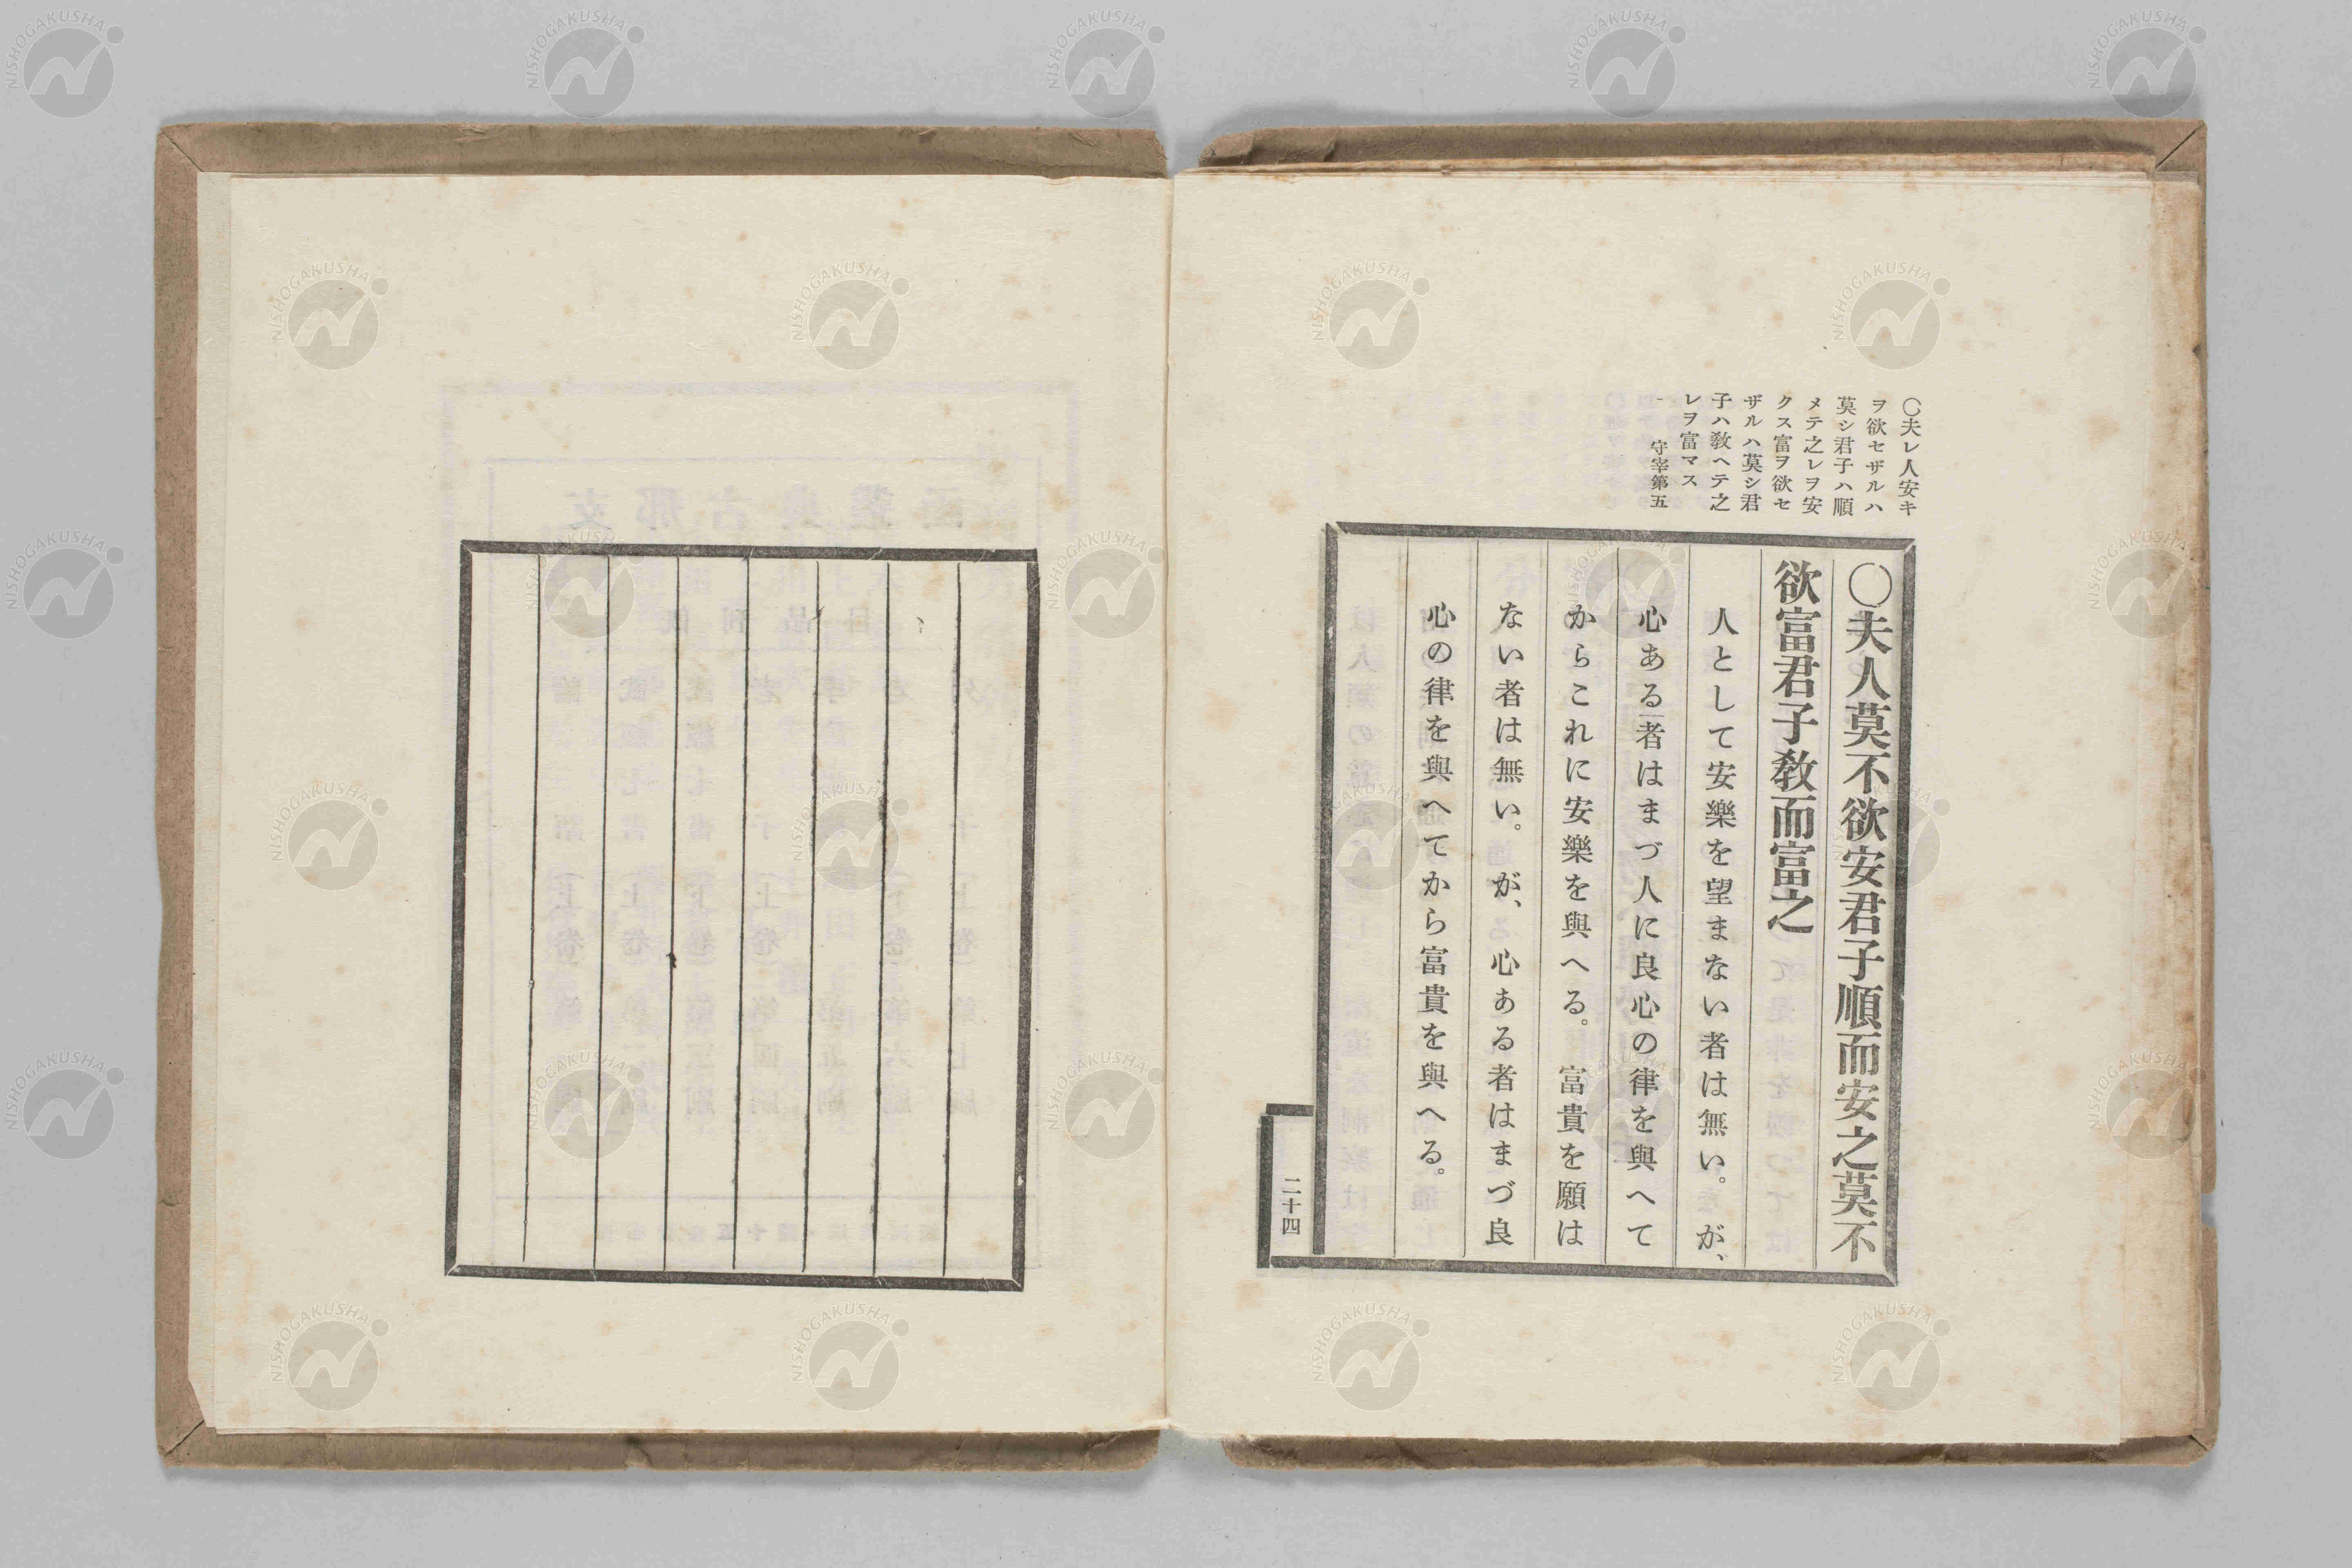 〇夫レ人安キ
ヲ欲セザルハ
莫シ君子ハ順
メテ之レヲ安
クス富ヲ欲セ
ザルハ莫シ君
子ハ敎ヘテ之
レヲ富マス
守宰第五
〇夫人莫不欲安君子順而安之莫不
欲富君子敎而富之
人として安樂を望まない者は無い。が、
心ある者はまづ人に良心の律を與へて
からこれに安樂を與へる。富貴を願は
ない者は無い。が、心ある者はまづ良
心の律を與へてから富貴を與へる。
二十四
NISHOGAKUSHA